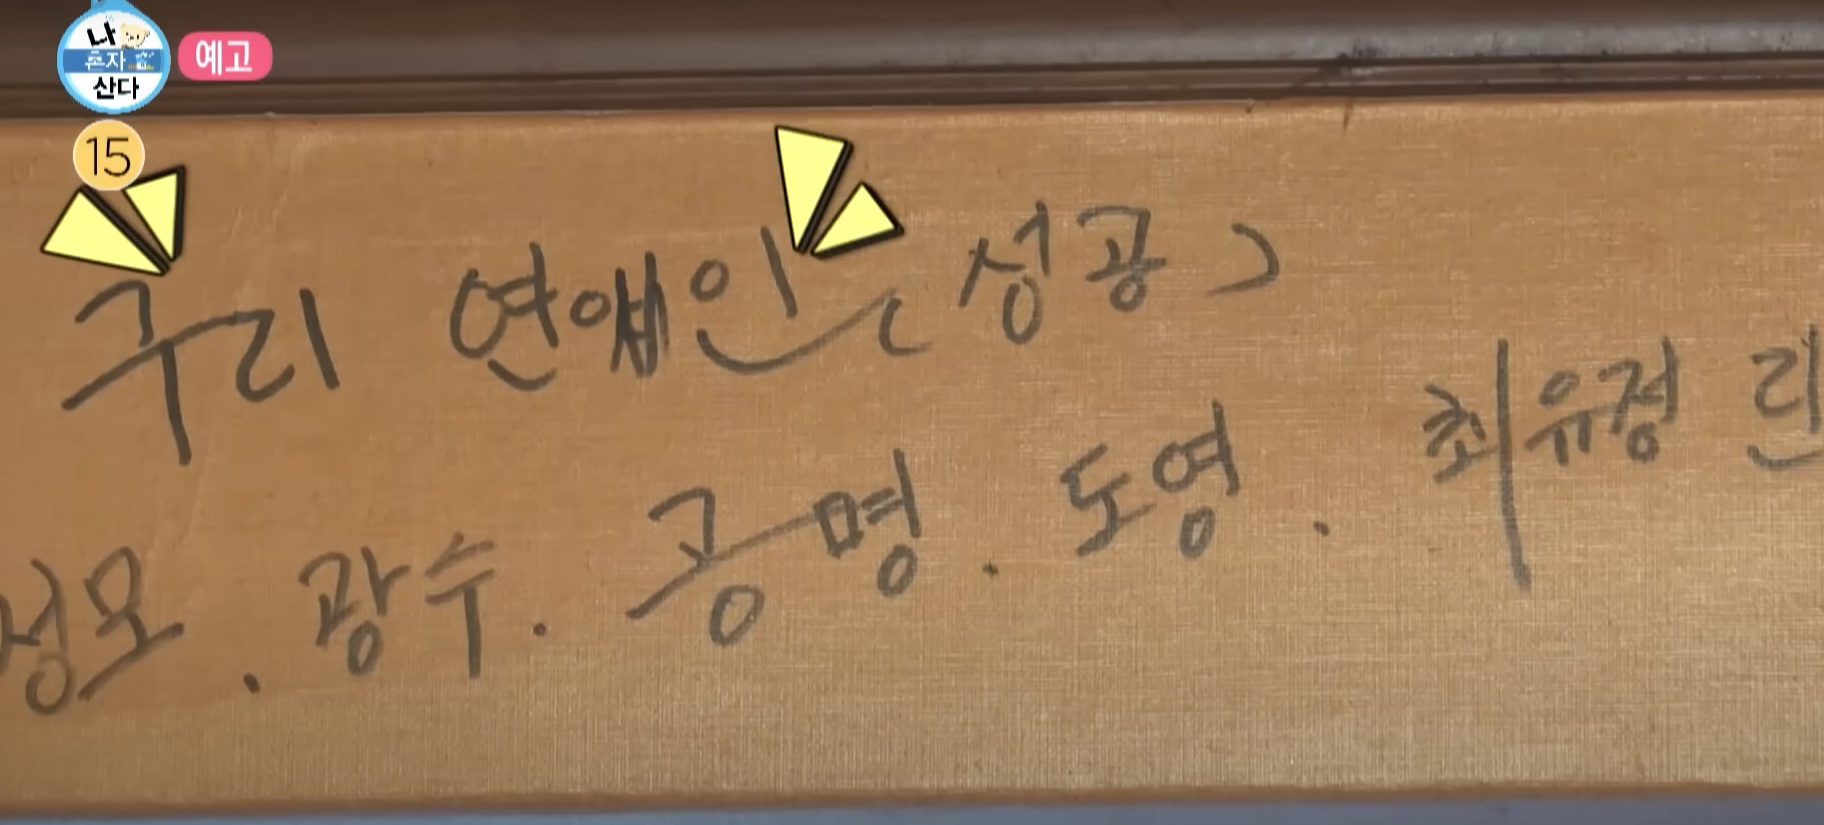 나
혼자
산다
예고
15
구리 연예인 (성공)
정모 . 광수 . 공명 . 도영 . 최유정